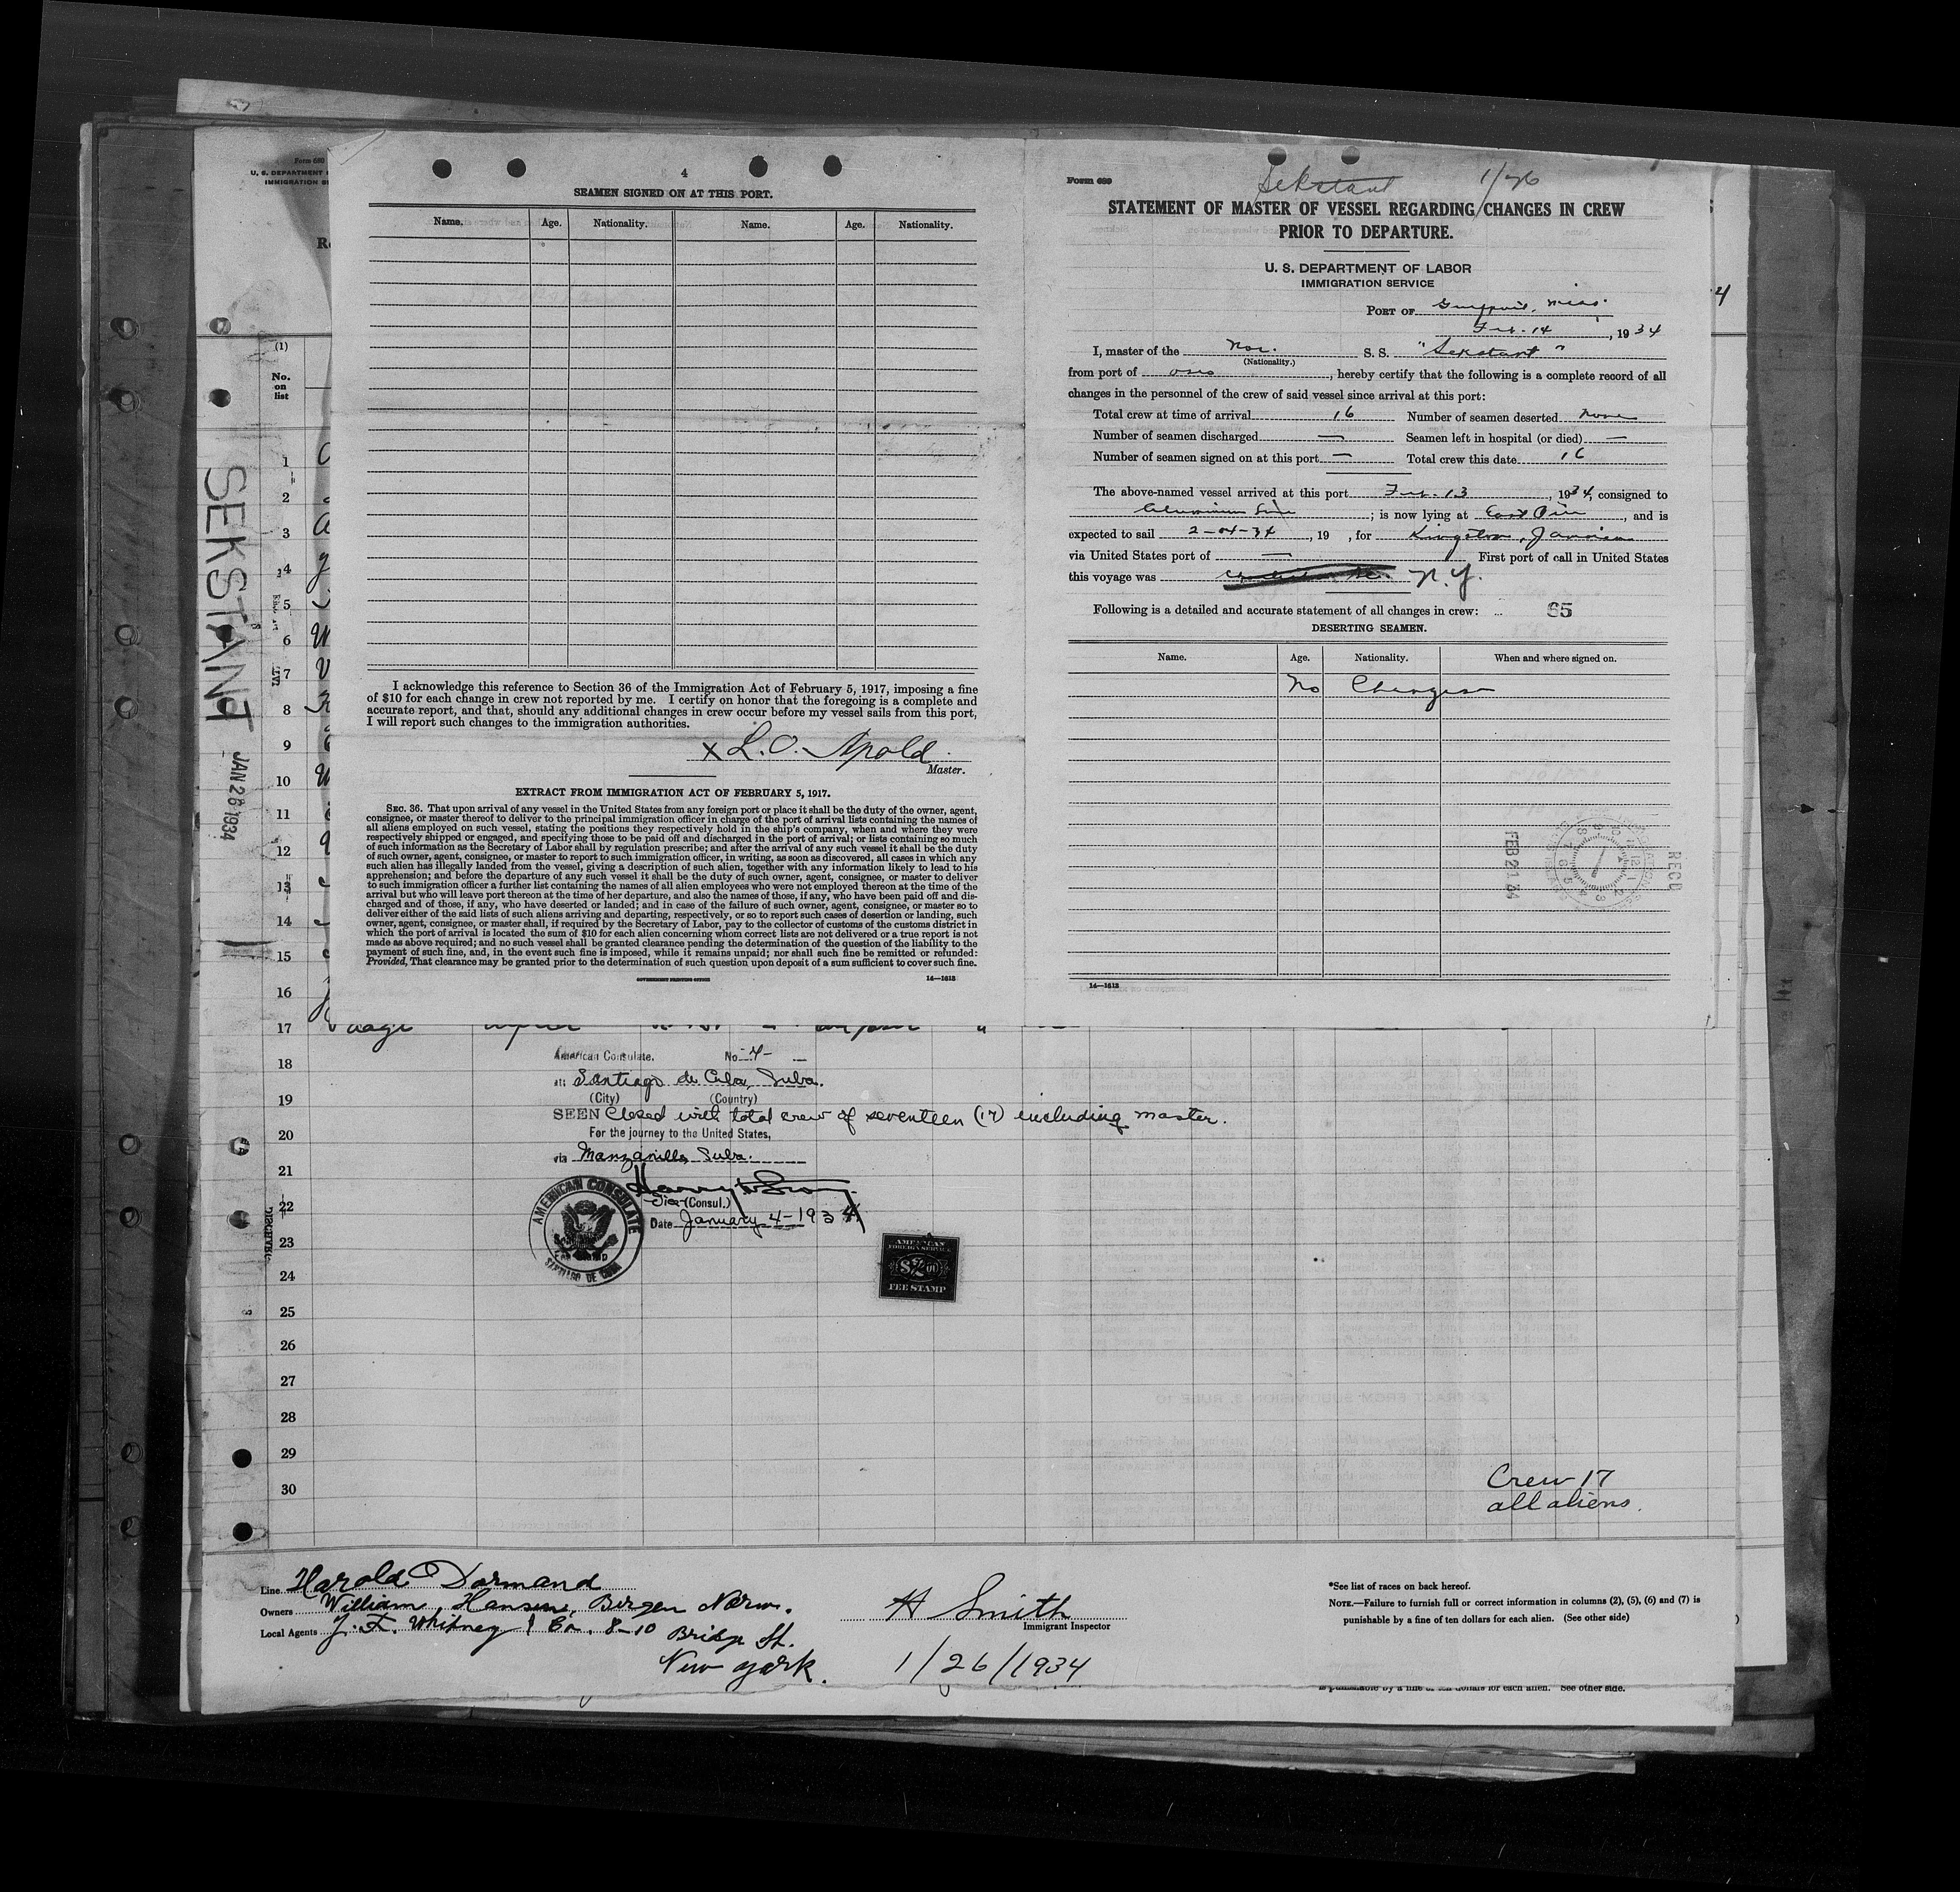 4
SEAMEN SIGNED ON AT THIS PORT.
Name. Age. Nationality. Name. Age. Nationality.
I acknowledge this reference to Section 36 of the Immigration Act of February 5, 1917, imposing a fine
of $10 for each change in crew not reported by me. I certify on honor that the foregoing is a complete and
accurate report, and that, should any additional changes in crew occur before my vessel sails from this port,
I will report such changes to the immigration authorities.
x L. O. Apold
Master.
EXTRACT FROM IMMIGRATION ACT OF FEBRUARY 5, 1917.
SEC. 36. That upon arrival of any vessel in the United States from any foreign port or place it shall be the duty of the owner, agent,
consignee, or master thereof to deliver to the principal immigration officer in charge of the port of arrival lists containing the names of
all aliens employed on such vessel, stating the positions they respectively hold in the ship's company, when and where they were
respectively shipped or engaged, and specifying those to be paid off and discharged in the port of arrival; or lists containing so much
of such information as the Secretary of Labor shall by regulation prescribe; and after the arrival of any such vessel it shall be the duty
of such owner, agent, consignee, or master to report to such immigration officer, in writing, as soon as discovered, all cases in which any
such alien has illegally landed from the vessel, giving a description of such alien, together with any information likely to lead to his
apprehension; and before the departure of any such vessel it shall be the duty of such owner, agent, consignee, or master to deliver
to such immigration officer a further list containing the names of all alien employees who were not employed thereon at the time of the
arrival but who will leave port thereon at the time of her departure, and also the names of those, if any, who have been paid off and dis-
charged and of those, if any, who have deserted or landed; and in case of the failure of such owner, agent, consignee, or master so to
deliver either of the said lists of such aliens arriving and departing, respectively, or so to report such cases of desertion or landing, such
owner, agent, consignee, or master shall, if required by the Secretary of Labor, pay to the collector of customs of the customs district in
which the port of arrival is located the sum of $10 for each alien concerning whom correct lists are not delivered or a true report is not
made as above required; and no such vessel shall be granted clearance pending the determination of the question of the liability to the
payment of such fine, and, in the event such fine is imposed, while it remains unpaid; nor shall such fine be remitted or refunded:
Provided, That clearance may be granted prior to the determination of such question upon deposit of a sum sufficient to cover such fine.
GOVERNMENT PRINTING OFFICE 14—1613
Form 689 Sekstant 1/26
STATEMENT OF MASTER OF VESSEL REGARDING CHANGES IN CREW
PRIOR TO DEPARTURE.
U. S. DEPARTMENT OF LABOR
IMMIGRATION SERVICE
PORT OF Gulfport, Miss.
Feb. 14, 1934
I, master of the Nor. S. S. "Sekstant"
(Nationality.)
from port of , hereby certify that the following is a complete record of all
changes in the personnel of the crew of said vessel since arrival at this port:
Total crew at time of arrival 16 Number of seamen deserted none
Number of seamen discharged — Seamen left in hospital (or died) —
Number of seamen signed on at this port — Total crew this date 16
The above-named vessel arrived at this port Feb. 13, 1934, consigned to
Aluminum Line; is now lying at East Pier, and is
expected to sail 2-04-34, 19 , for Kingston, Jamaica
via United States port of — First port of call in United States
this voyage was N.Y.
Following is a detailed and accurate statement of all changes in crew: 65
DESERTING SEAMEN.
Name. Age. Nationality. When and where signed on.
No Changes
FEB 21 34
RECD
14—1613
Form 680
U. S. DEPARTMENT
IMMIGRATION
(1)
No.
on
list
SEKSTANT JAN 26 1934
1
2
3
4
5
6
7
8
9
10
11
12
13
14
15
16
17
18
19
20
21
22
23
24
25
26
27
28
29
30
American Consulate. No. 4-
at: Santiago de Cuba, Cuba.
(City) (Country)
SEEN Closed with total crew of seventeen (17) including master.
For the journey to the United States,
via Manzanillo, Cuba.
Vice (Consul.)
Date January 4-1934
AMERICAN CONSULATE
SANTIAGO DE CUBA
AMERICAN
FOREIGN SERVICE
$2.00
FEE STAMP
Crew 17
all aliens.
Line Harold Dormand
Owners William Hansen, Bergen Norw.
Local Agents J. F. Whitney & Co. 8-10 Bridge St.
New York.
H Smith
Immigrant Inspector
1/26/1934
*See list of races on back hereof.
NOTE.—Failure to furnish full or correct information in columns (2), (5), (6) and (7) is
punishable by a fine of ten dollars for each alien. (See other side)
is punishable by a fine of ten dollars for each alien. See other side.